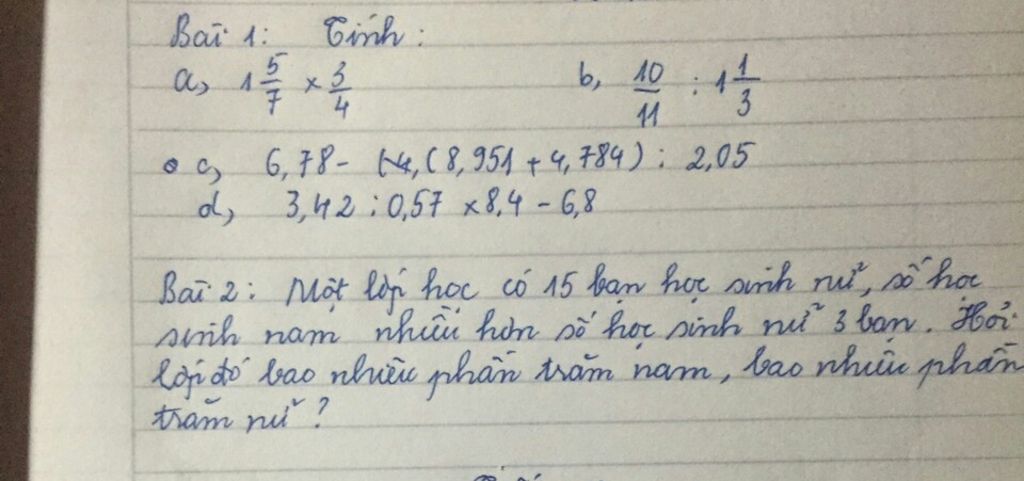 Bài 1: Tính:
a, 1 5/7 x 3/4 b, 10/11 : 1 1/3
c, 6,78 - (8,951 + 4,784) : 2,05
d, 3,42 : 0,57 x 8,4 - 6,8
Bài 2: Một lớp học có 15 bạn học sinh nữ, số học
sinh nam nhiều hơn số học sinh nữ 3 bạn. Hỏi
lớp đó bao nhiêu phần trăm nam, bao nhiêu phần
trăm nữ?